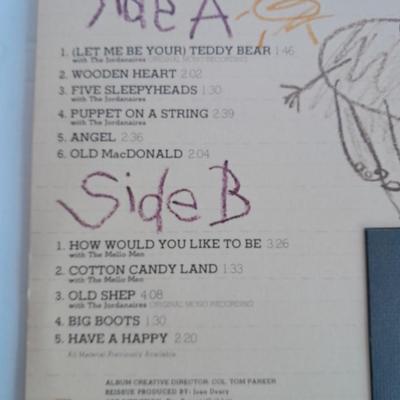 Side A
1. (LET ME BE YOUR) TEDDY BEAR 1:46
with The Jordanaires ORIGINAL MONO RECORDING
2. WOODEN HEART 2:02
3. FIVE SLEEPYHEADS 1:30
with The Jordanaires
4. PUPPET ON A STRING 2:39
with The Jordanaires
5. ANGEL 2:36
6. OLD MacDONALD 2:04
Side B
1. HOW WOULD YOU LIKE TO BE 3:26
with The Mello Men
2. COTTON CANDY LAND 1:33
with The Mello Men
3. OLD SHEP 4:08
with The Jordanaires ORIGINAL MONO RECORDING
4. BIG BOOTS 1:30
5. HAVE A HAPPY 2:20
All Material Previously Available
ALBUM CREATIVE DIRECTOR: COL. TOM PARKER
REISSUE PRODUCED BY: Joan Deary